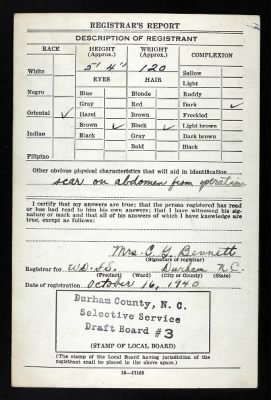 REGISTRAR'S REPORT
DESCRIPTION OF REGISTRANT
RACE HEIGHT (Approx.) WEIGHT (Approx.) COMPLEXION
5' 4" 120
White Sallow
EYES HAIR Light
Negro Blue Blonde Ruddy
Gray Red Dark ✓
Oriental ✓ Hazel Brown Freckled
Brown ✓ Black ✓ Light brown
Indian Black Gray Dark brown
Bald Black
Filipino
Other obvious physical characteristics that will aid in identification
scar on abdomen from operation
I certify that my answers are true; that the person registered has read
or has had read to him his own answers; that I have witnessed his sig-
nature or mark and that all of his answers of which I have knowledge are
true, except as follows:
Mrs. C. G. Bennett
(Signature of registrar)
Registrar for Durham N.C.
(Precinct) (Ward) (City or County) (State)
Date of registration October 16, 1940
Durham County, N. C.
Selective Service
Draft Board #3
(STAMP OF LOCAL BOARD)
(The stamp of the Local Board having jurisdiction of the
registrant shall be placed in the above space.)
16—17105